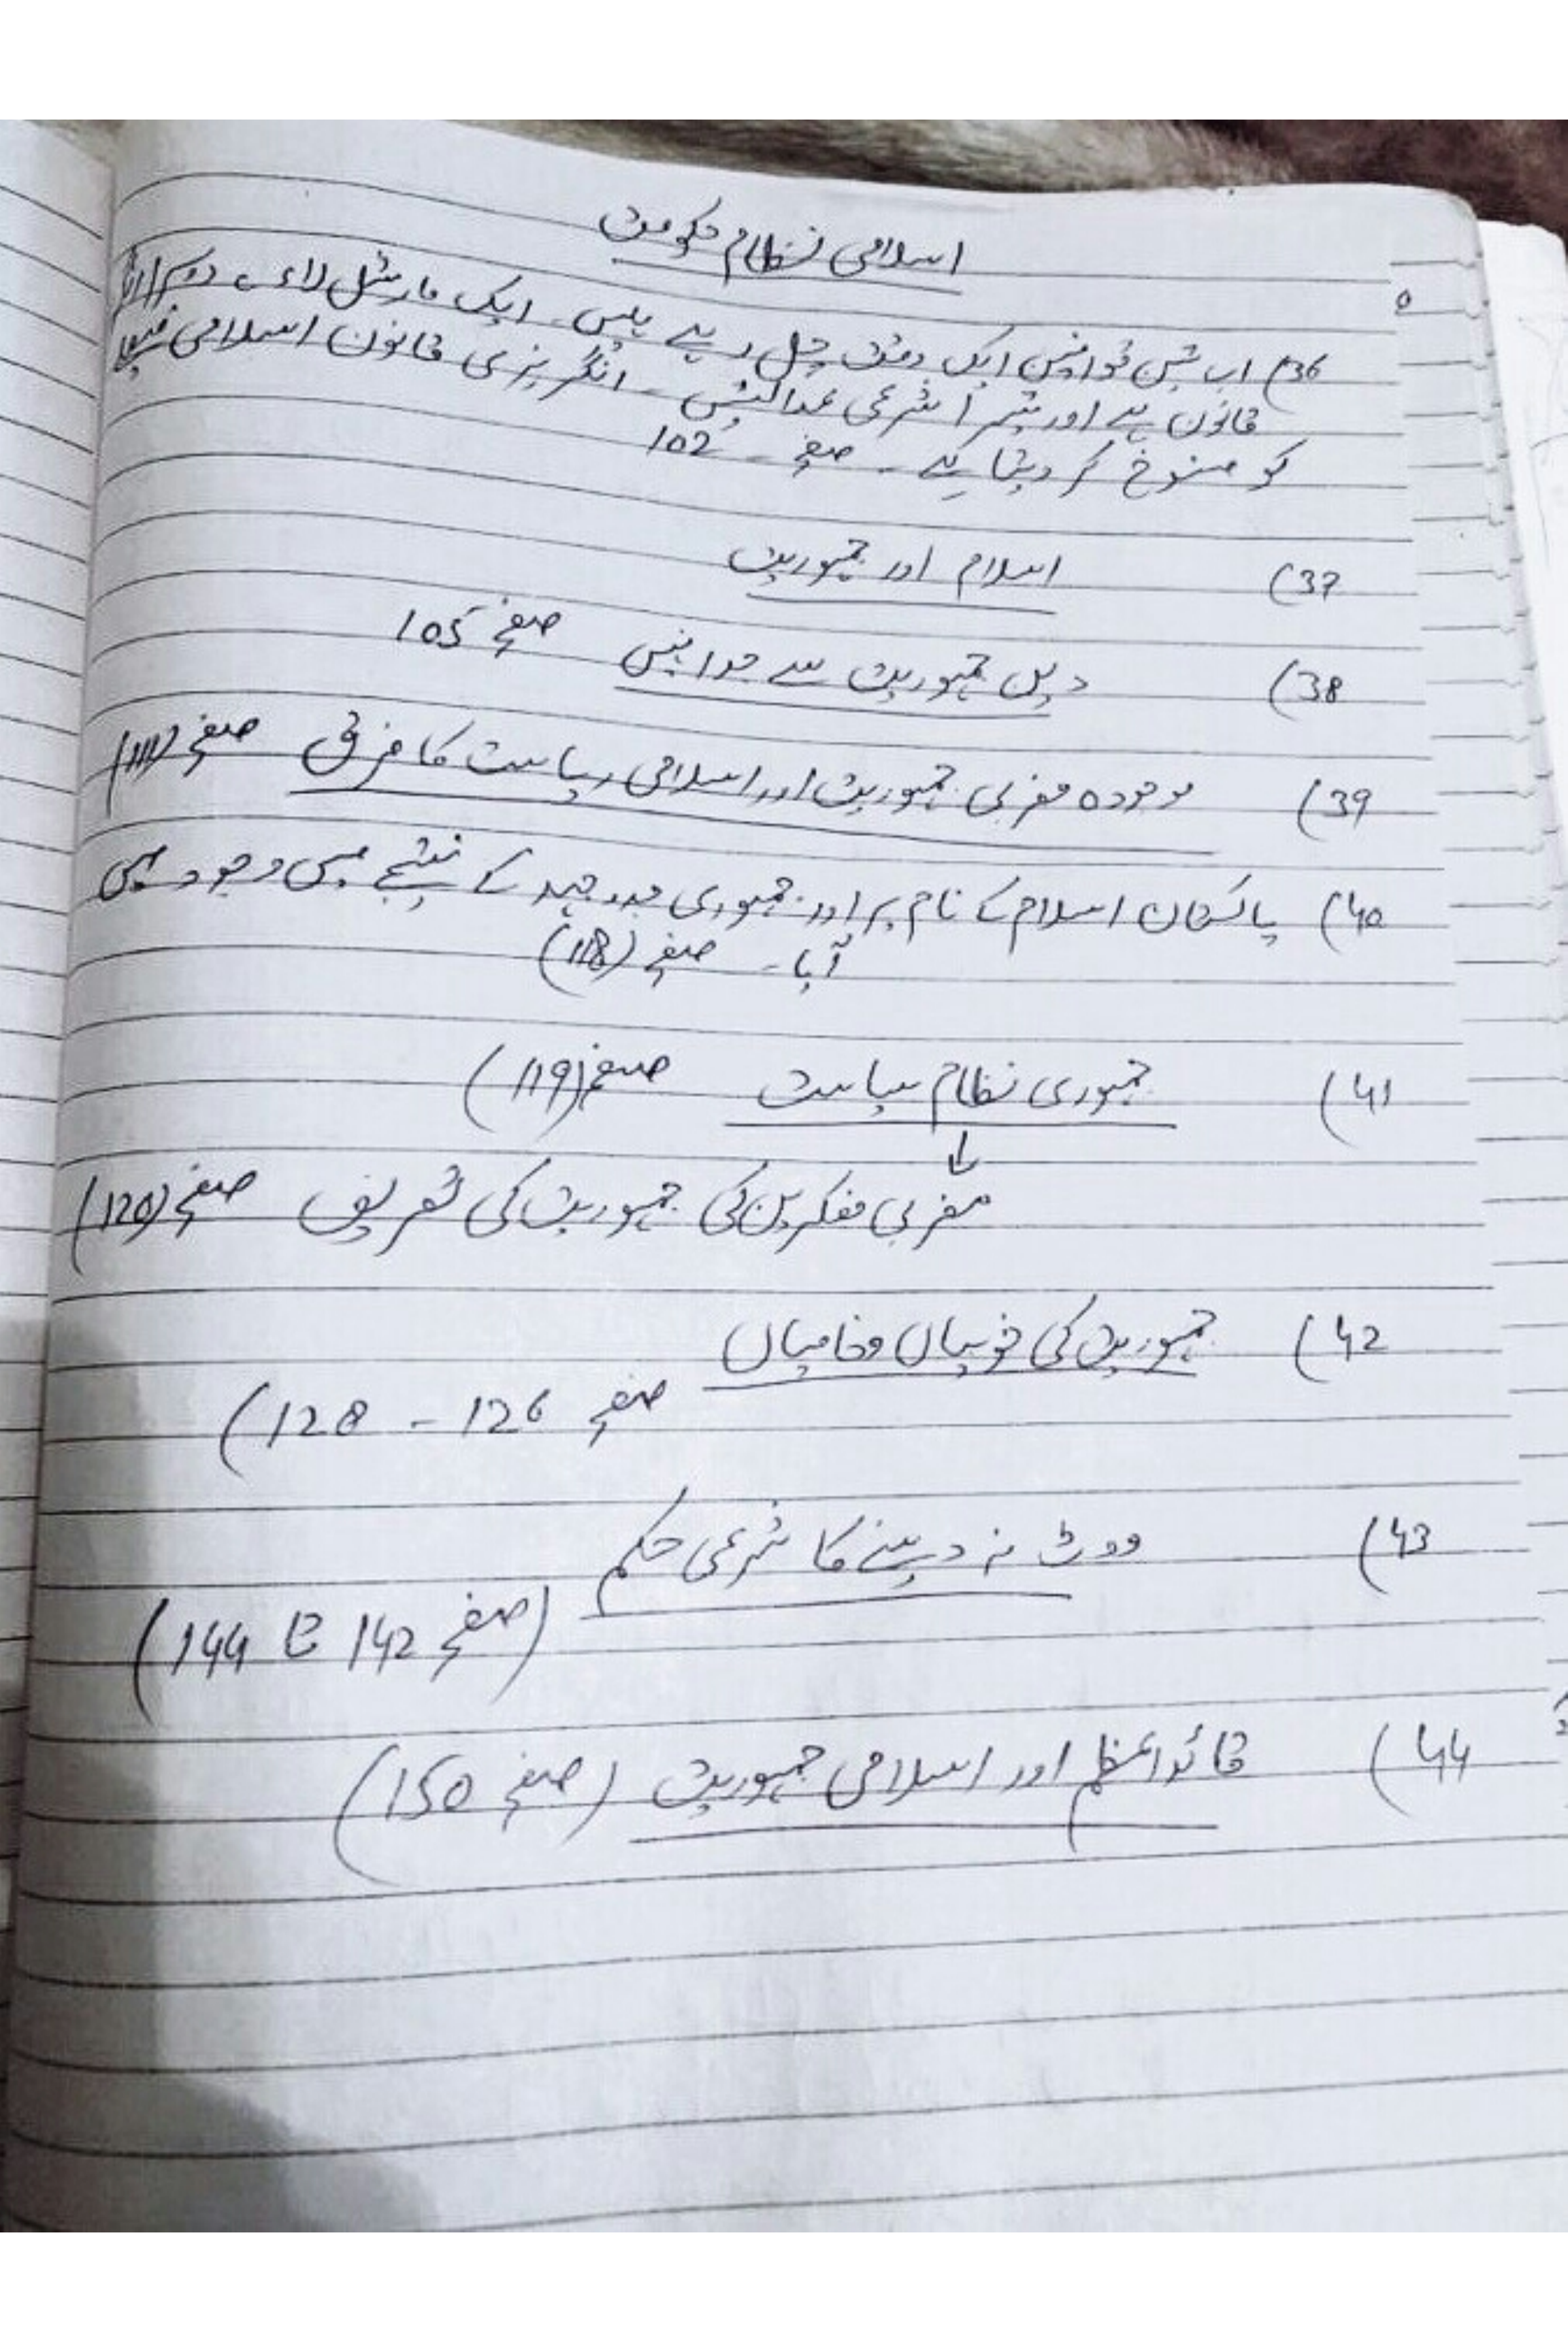 اسلامی نظام حکومت
36) اب تین قوانین ایک وقت چل رہے ہیں۔ ایک مارشل لاء، دوسرا
قانون ہے اور تیسرا شرعی عدالتیں۔ انگریزی قانون اسلامی
کو منسوخ کر دیتا ہے۔ صفحہ - 102
37) اسلام اور جمہوریت
38) دین جمہوریت سے جدا نہیں صفحہ 105
39) موجودہ مغربی جمہوریت اور اسلامی ریاست کا فرق صفحہ (111)
40) پاکستان اسلام کے نام پر اور جمہوری جدوجہد کے نتیجے میں وجود میں
آیا۔ صفحہ (118)
41) جمہوری نظام سیاست صفحہ (119)
↓
مغربی مفکرین کی جمہوریت کی تعریف صفحہ (120)
42) جمہوریت کی خوبیاں و خامیاں
صفحہ 126 - 128)
43) ووٹ نہ دینے کا شرعی حکم
(صفحہ 142 تا 144)
44) قائداعظم اور اسلامی جمہوریت (صفحہ 150)